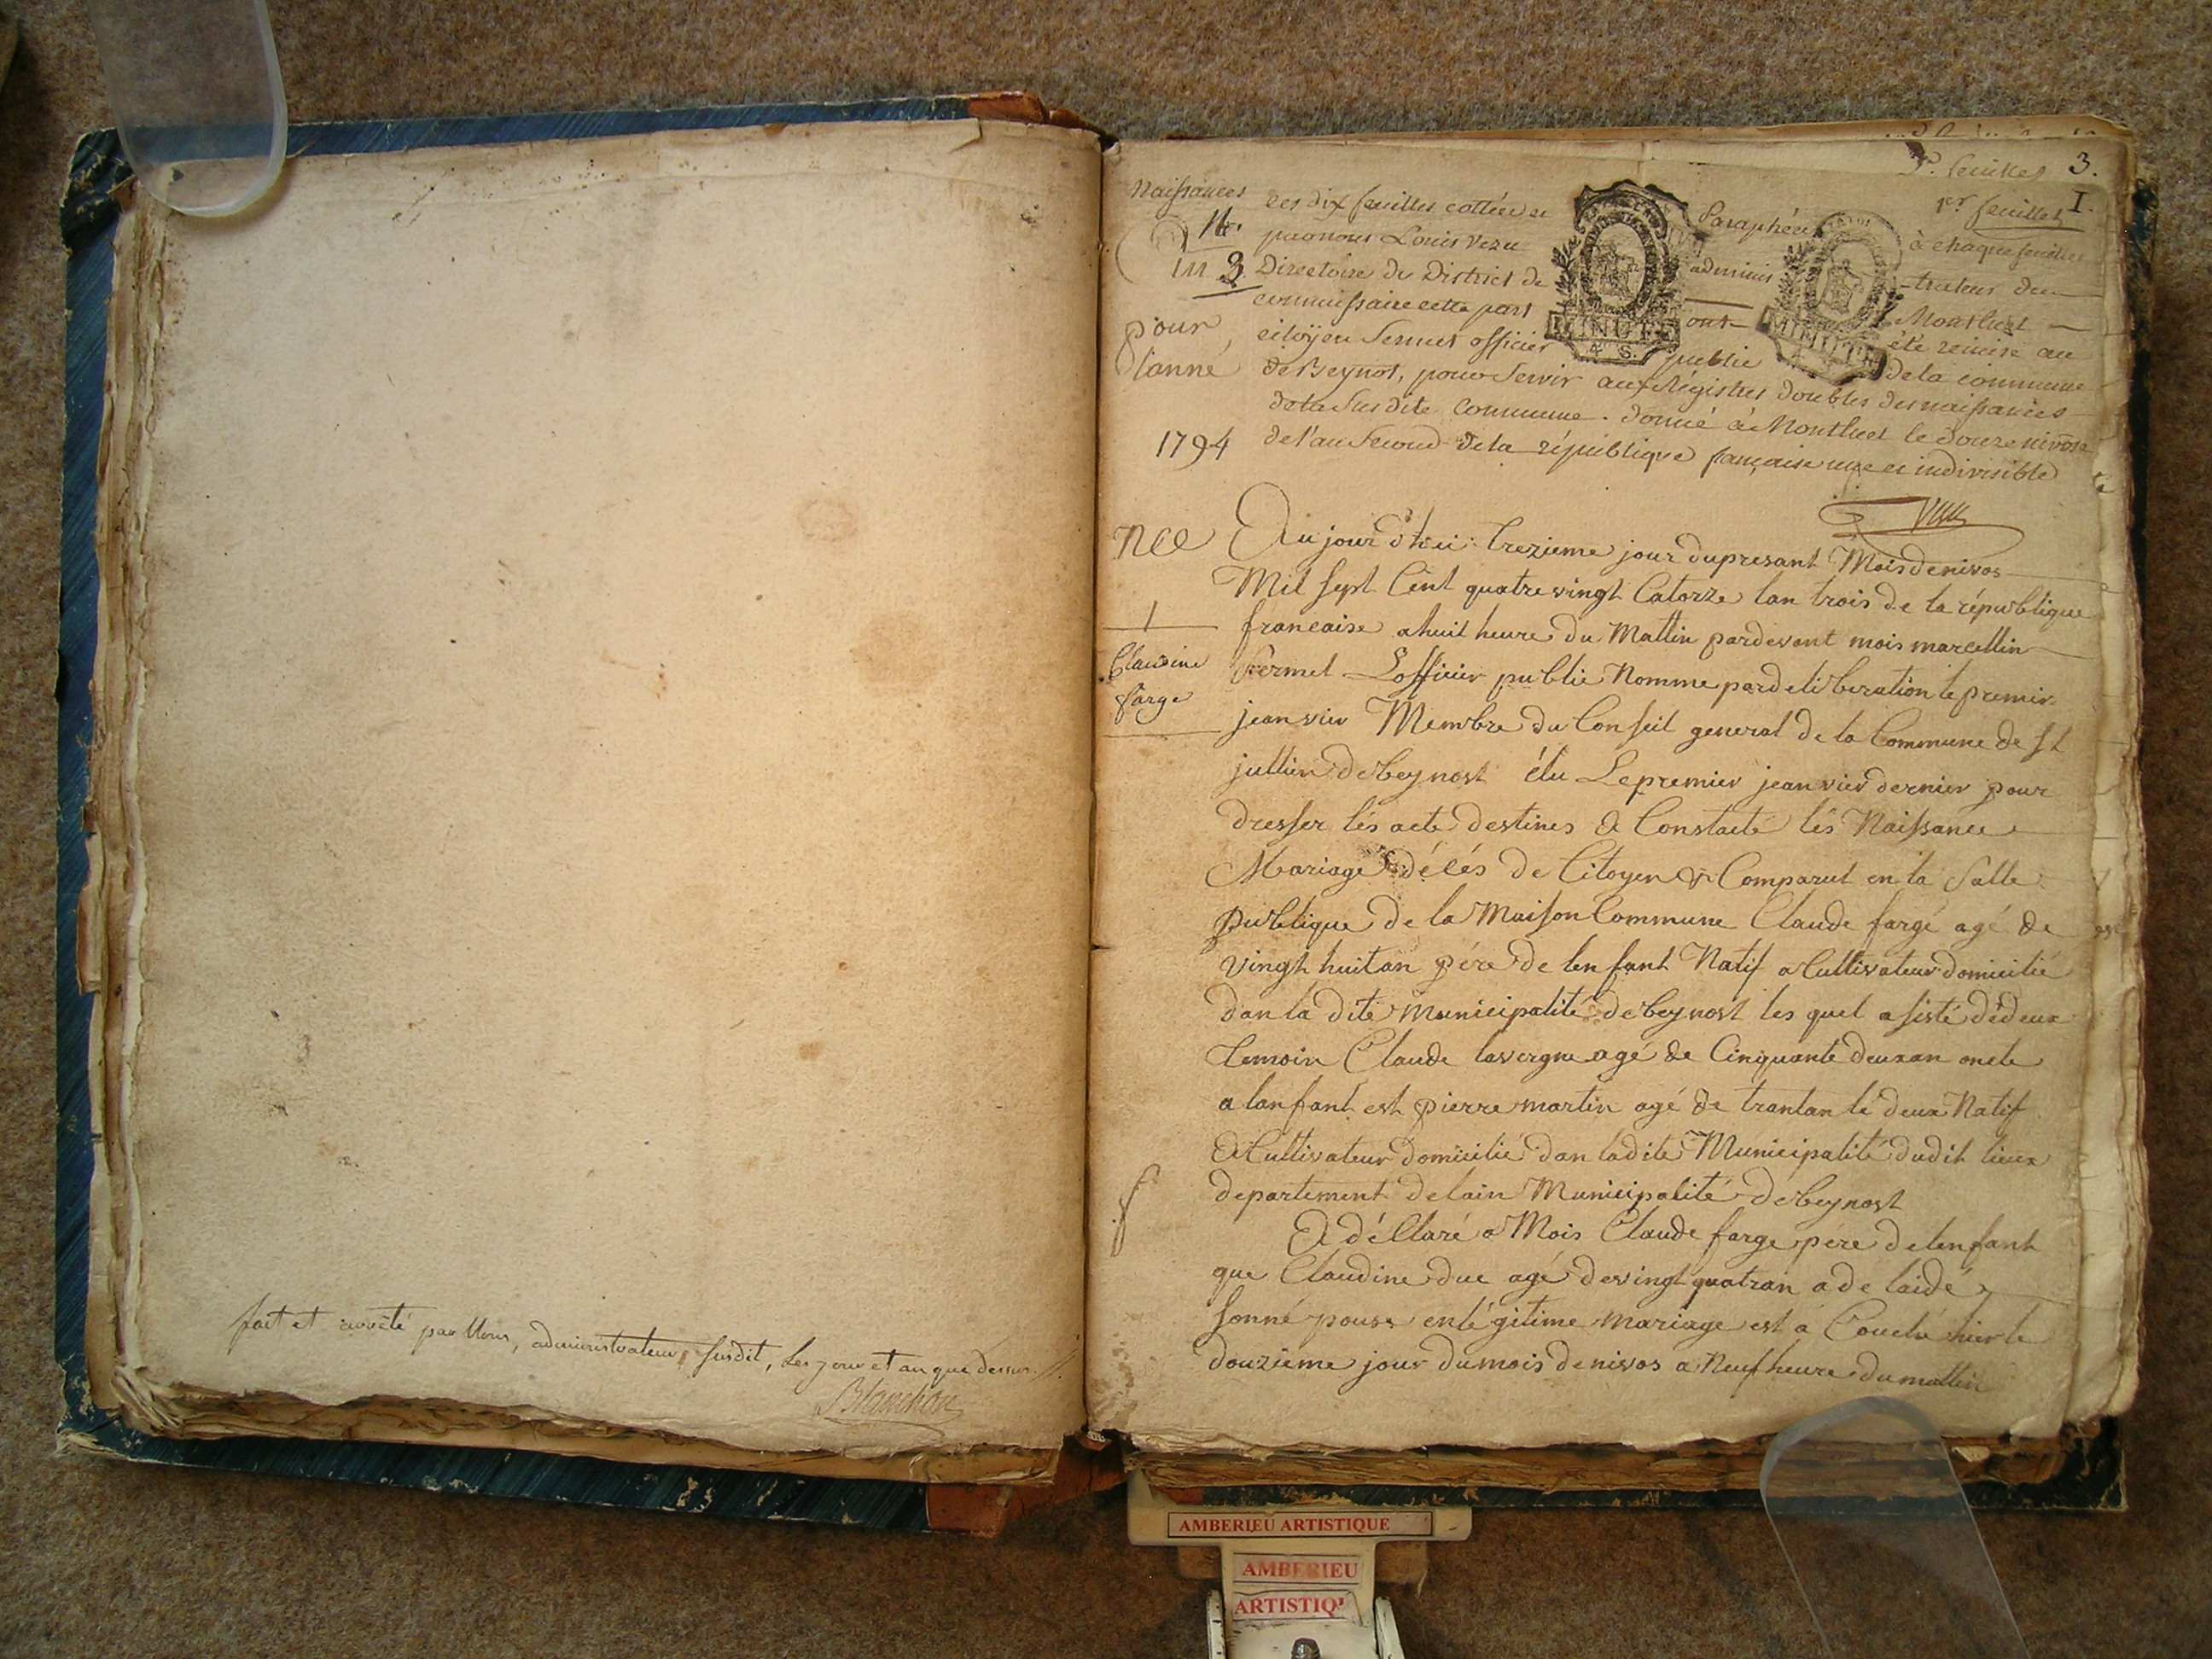 fait et arrêté par Nous, administrateur susdit, les jour et an que dessus.
Blanchon
3.
1er feuillet I.
Naissances
N°.
3
pour
l'anné
1794
ces dix feuilles cottées et Paraphées à chaque feuillet
par nous Louis Vezu adminis-trateur du
Directoire du District de Montluel
commissaire cette part ont été remise au
citoÿen fermet officier public de la commune
de Beynost, pour servir aux Régistres doubles des naissances
de la susdite Commune. donné à Montluel le douze nivose
de l'an second de la république française une et indivisible
MINUTE
4 S.
MINUTE
Nee
1
Claudine
farge
Au jour d'huei trezieme jour du presant Mois de nivos
Mil sept Cent quatre vingt Catorze lan trois de la république
francaise a huit heure du Mattin pardevant mois marcellin
fermet Lofficier public Nomme par deliberation le premier
jeanvier Membre du Conseil general de la Commune de St
jullien de beynost élu Le premier jeanvier dernier pour
dresser lés acte destines a Constaté lés Naissance
Mariage déces de Citoyen Comparut en la salle
publique de la Maison Commune Claude farge agé de
vingt huit an pére de lenfant Natif a Cultivateur domicilié
dan la dite municipalité de beynost les quel a sisté dé deux
temoin Claude lavergne agé de Cinquante deux an oncle
a lanfant est pierre martin agé de trantan lé deux Natif
& Cultivateur domicilié dan ladite Municipalité dudit lieux
departement de lain Municipalité de beynost
A déClaré a Mois Claude farge pére de lenfant
que Claudine duc agé de vingt quatran a de laidé
sonné pouse en légitime mariage est a Couché hier le
douziéme jour du mois de nivos a Neuf heure du mattin
AMBERIEU ARTISTIQUE
AMBERIEU
ARTISTIQ